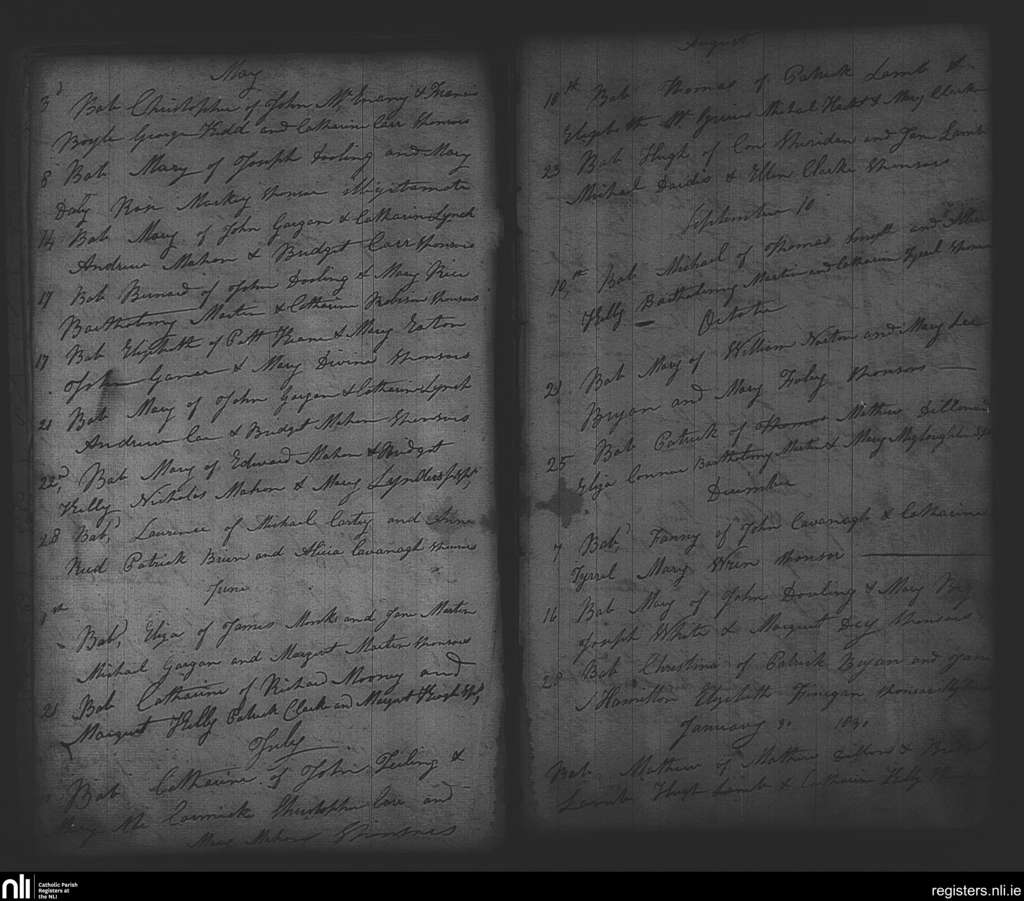 May
3d Bab Christopher of John Mc Enany & Francis
Boyle George Kidd and Catharin Carr Sponsors
8 Bab Mary of Joseph Dooling and Mary
Daly Rose Markey Sponsor
14 Bab Mary of John Gargan & Catharin Lynch
Andrew Mahon & Bridget Carr Sponsors
17 Bab Bernard of John Dooling & Mary Rice
Bartholomy Martin & Catharin Sponsors
17 Bab Elizabeth of Patt Keane & Mary Eaton
John & Mary Divine Sponsors
21 Bab Mary of John Gargan & Catharin Lynch
Andrew Car & Bridget Mahon Sponsors
22nd, Bab Mary of Edward Mahon & Bridget
Kelly Nicholas Mahon & Mary Lynders
28 Bab, Laurence of Michael Carty and Anne
Reed Patrick Brien and Alicia Cavanagh Sponsors
June
1st
Bab, Eliza of James Monks and Jane Martin
Michael Gargan and Margret Martin Sponsors
21 Bab Catharine of Richard Mooney and
Margret Kelly Patrick Clark and Margret Keogh
July
Bab Catharine of John &
Mc Cormick Christopher Care and
Mary Mahon Sponsors
August
10th Bab Thomas of Patrick Lamb &
Elizabeth Michael & Mary Clarke
23 Bab Hugh of Con Sheridan and Jane Lamb
Michael & Ellen Clarke Sponsors
September 10
10th Bab Michael of Thomas Smyth and
Kelly Bartholomy Martin and Catharin Tyrrel
October
21 Bab Mary of William Norton and Mary Lee
Bryan and Mary Foley Sponsors
25 Bab Patrick of Thomas Mathew Dillon
Eliza Connor Bartholomy Martin & Mary
December
7 Bab, Fanny of John Cavanagh & Catharine
Tyrrel Mary Wren Sponsor
16 Bab Mary of John Dowling & Mary
Joseph White & Margret Dey Sponsors
28 Bab Christina of Patrick Bryan and Jane
Hamilton Elizabeth Finegan
January 3. 1830
Bab Mathew of Mathew Dillon &
Lamb Hugh Lamb & Catharin Kelly
nli
Catholic Parish
Registers at
the NLI
registers.nli.ie